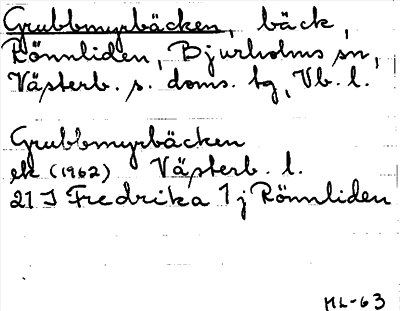 Grubbmyrbäcken, bäck,
Rönnliden, Bjurholms sn,
Västerb. s. doms. tg, Vb. l.
Grubbmyrbäcken
ek (1962) Västerb. l.
21 J Fredrika 1 j Rönnliden
ML-63